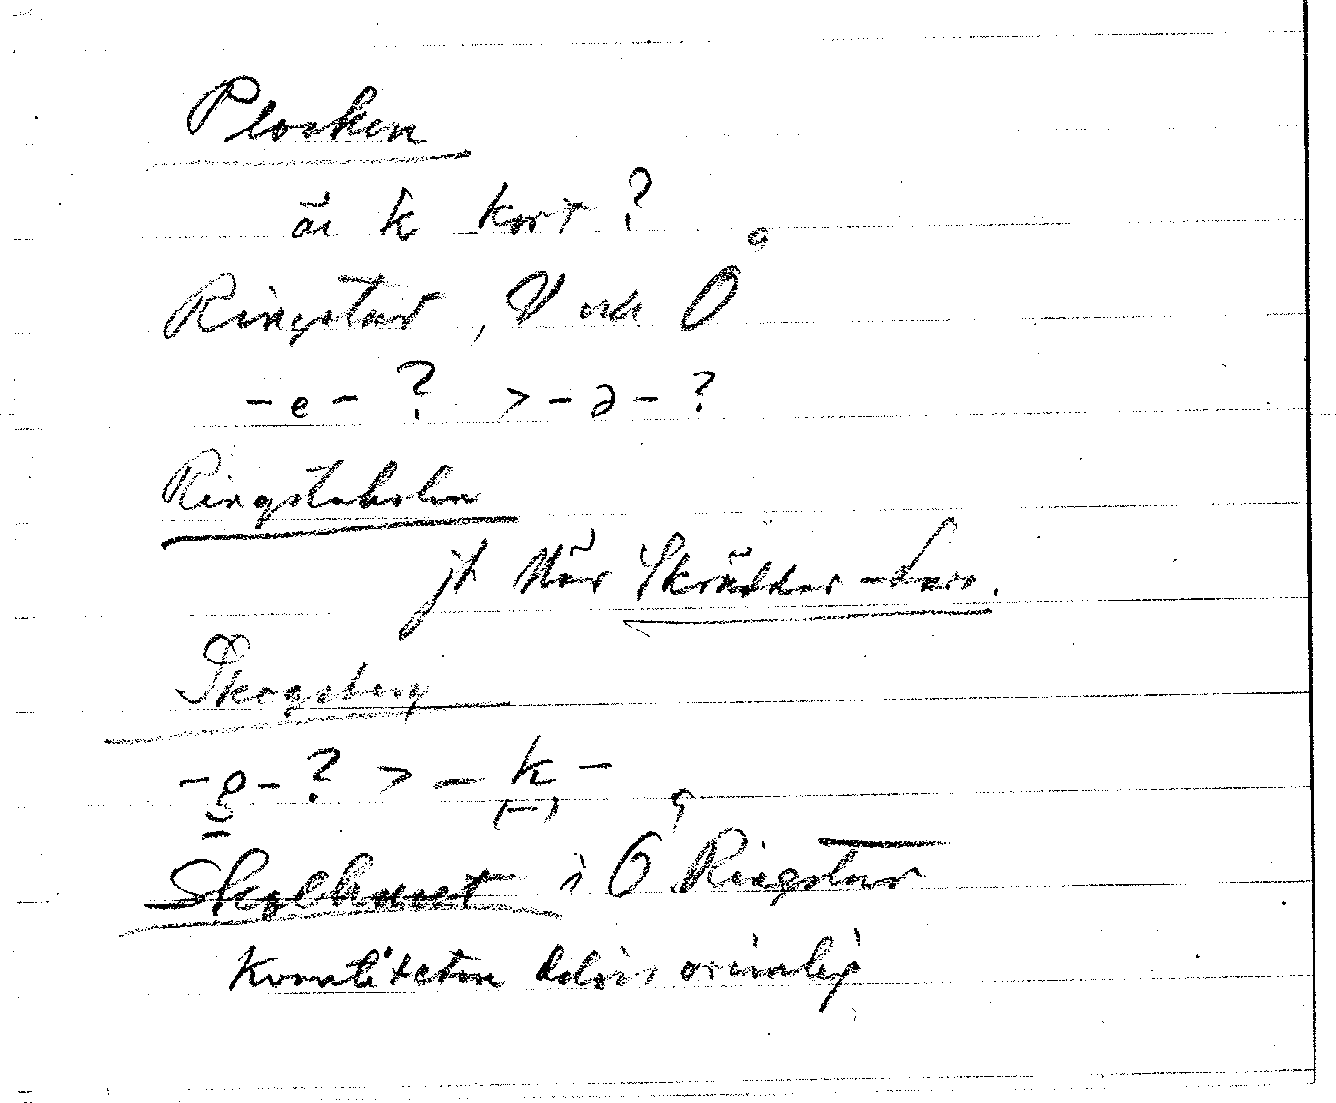 Plocken
är k kort?
Ringstad, V och Ö
-e-? > -ə-?
Ringstaholm
jf när Skräddar-Lars.
Skogsberg
-g-? > -k-
(-)
Skolhuset i Ö Ringstad
Kvantiteten delvis orimlig